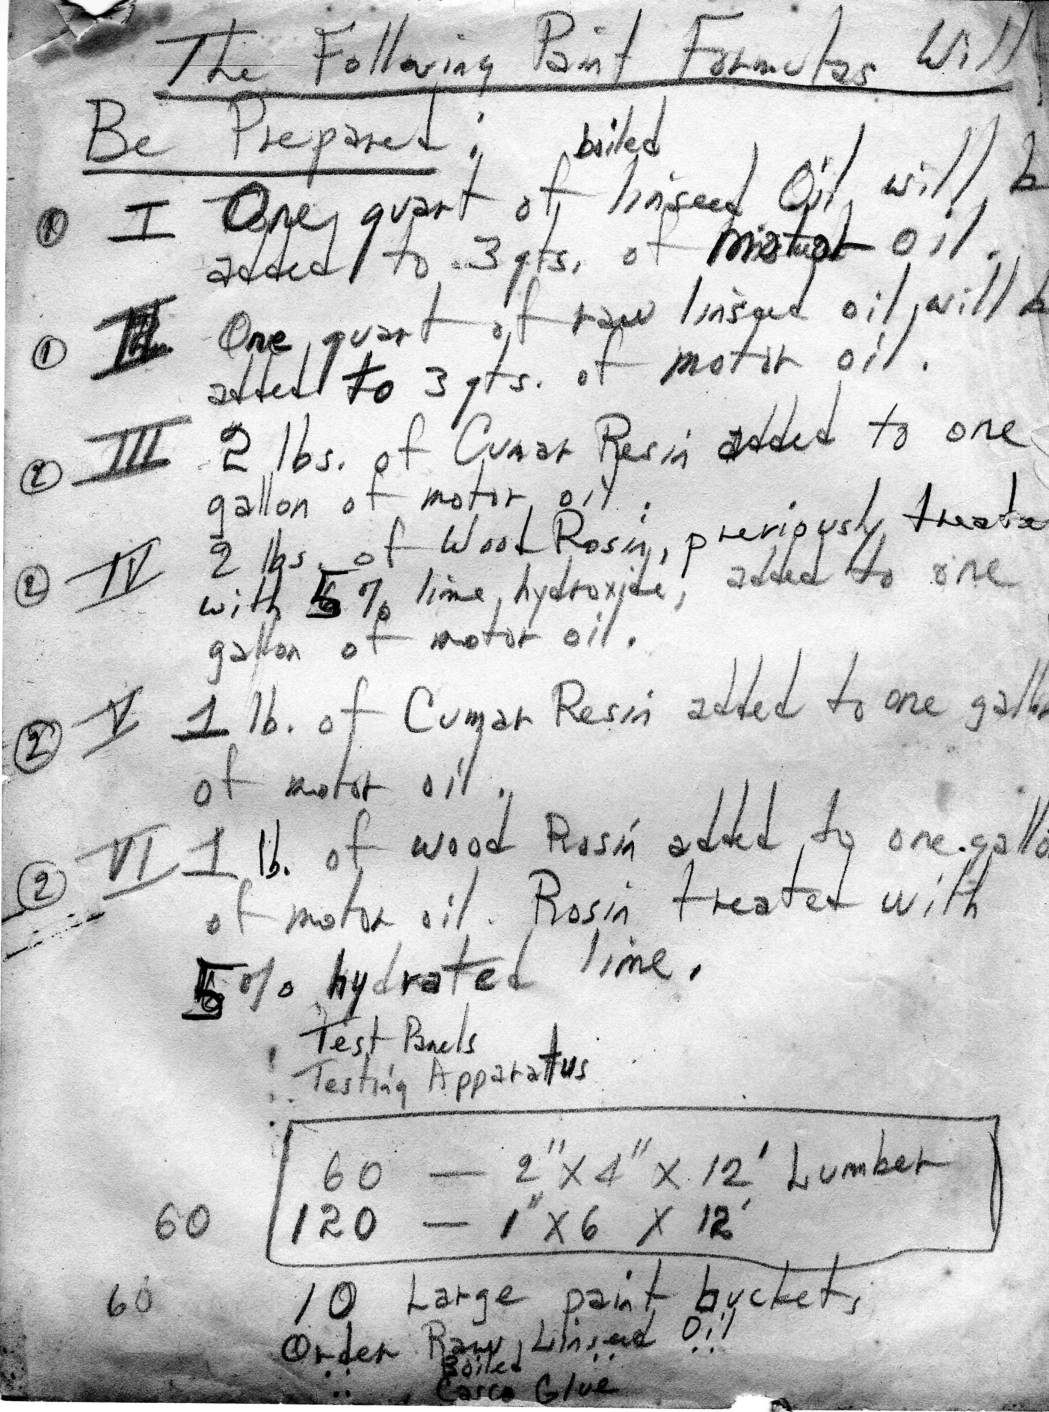 The Following Paint Formulas Will
Be Prepared:
boiled
① I One quart of linseed Oil will b
added to 3 qts. of Motor oil.
① II One quart of raw linseed oil will b
added to 3 qts. of motor oil.
② III 2 lbs. of Cumar Resin added to one
gallon of motor oil.
② IV 2 lbs. of Wood Rosin, previously treate
with 5% lime hydroxide, added to one
gallon of motor oil.
② V 1 lb. of Cumar Resin added to one gallo
of motor oil.
② VI 1 lb. of wood Rosin added to one gallo
of motor oil. Rosin treated with
5% hydrated lime.
Test Panels
Testing Apparatus
60 — 2" X 4" X 12' Lumber
60 120 — 1" X 6 X 12'
60 10 Large paint buckets
Order Raw Linseed Oil
Boiled
Casco Glue